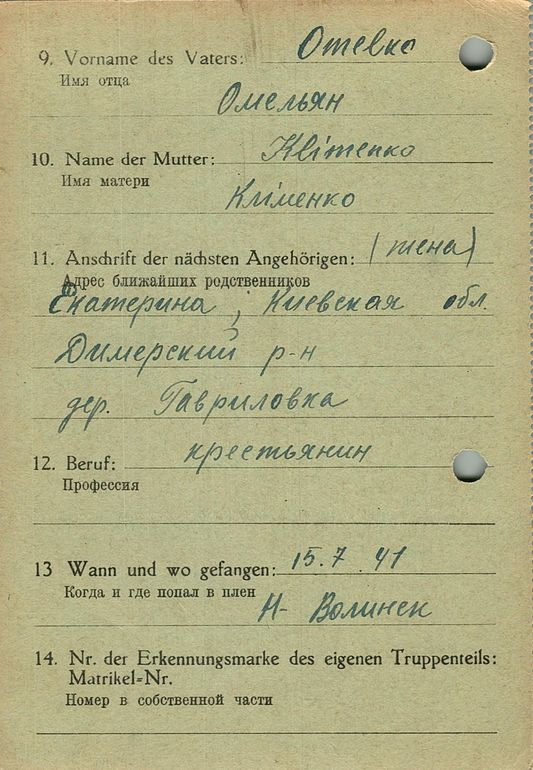 9. Vorname des Vaters: Отевко
Имя отца
Омельян
10. Name der Mutter: Клітепко
Имя матери
Кліменко
11. Anschrift der nächsten Angehörigen: (жена)
Адрес ближайших родственников
Екатерина, Киевская обл.
Димерский р-н
дер. Гавриловка
12. Beruf: крестьянин
Профессия
13 Wann und wo gefangen: 15.7.41
Когда и где попал в плен
Н- Волинск
14. Nr. der Erkennungsmarke des eigenen Truppenteils:
Matrikel=Nr.
Номер в собственной части